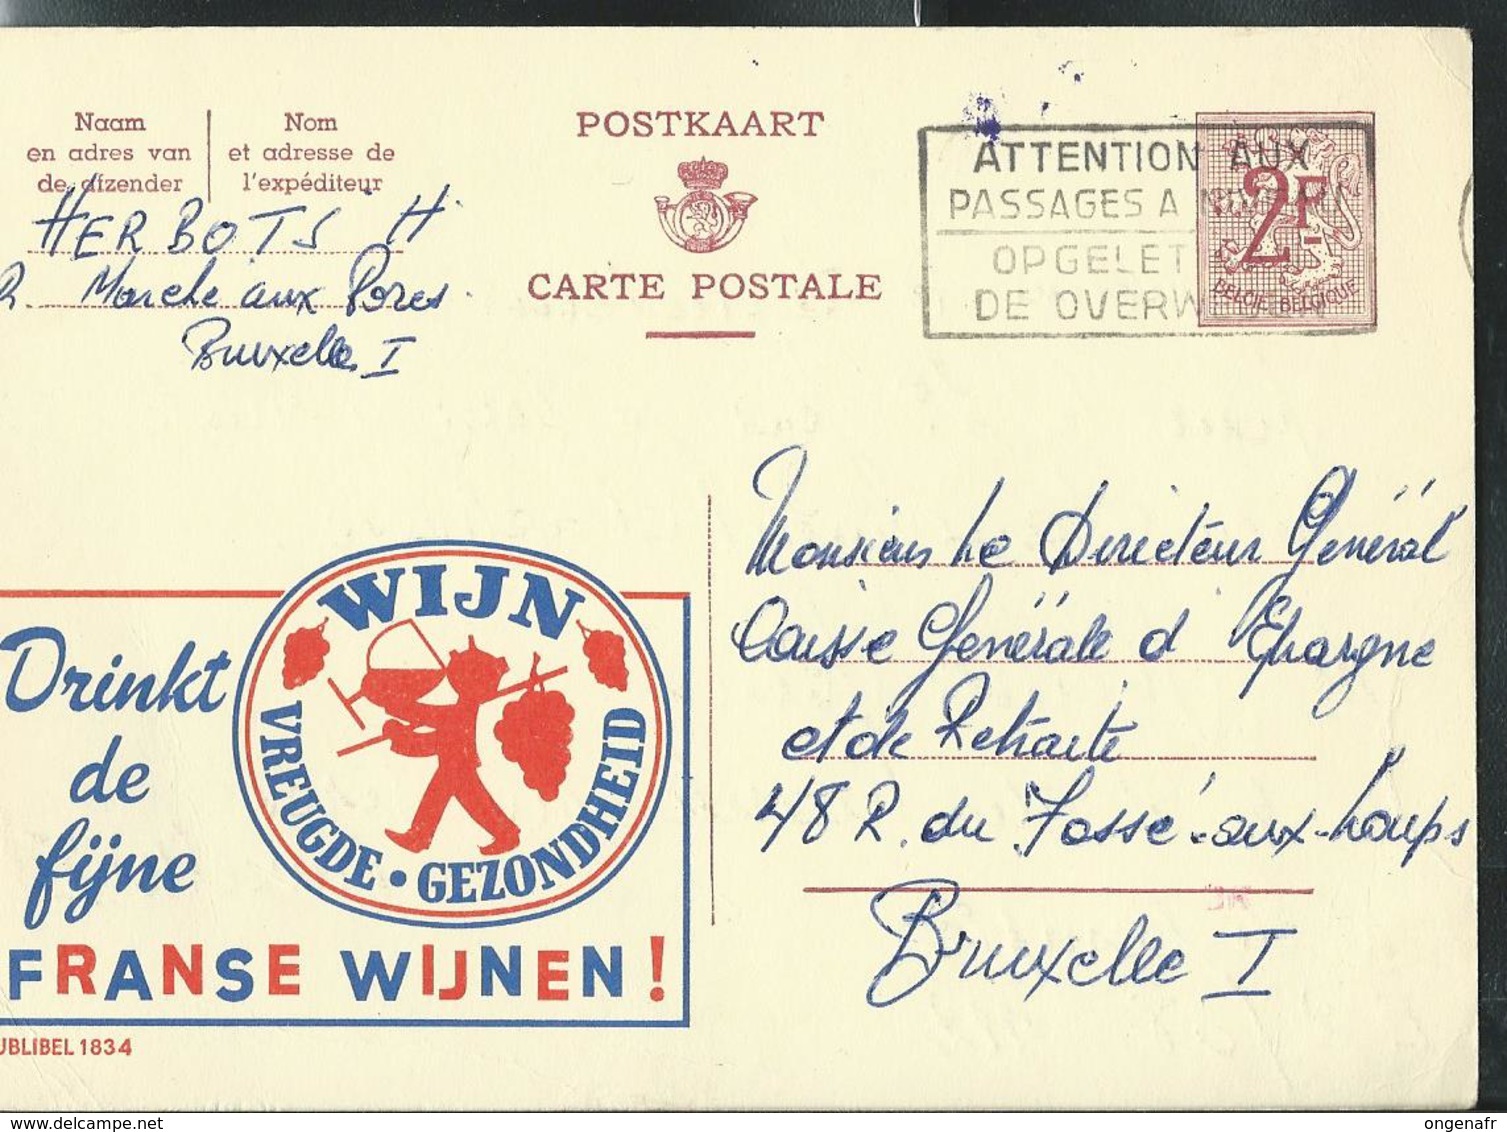 Naam
en adres van
de afzender
Nom
et adresse de
l'expéditeur
HERBOTS H
R. Marche aux Porcs
Bruxelle I
POSTKAART
CARTE POSTALE
ATTENTION AUX
PASSAGES A
OPGELET
DE
2F
BELGIE-BELGIQUE
Monsieur Le Directeur Général
Caisse Générale d'Epargne
et de Retraite
48 R. du Fossé-aux-Loups
Bruxelle I
Drinkt
de
fijne
FRANSE WIJNEN!
WIJN
VREUGDE • GEZONDHEID
UBLIBEL 1834
ongenafr